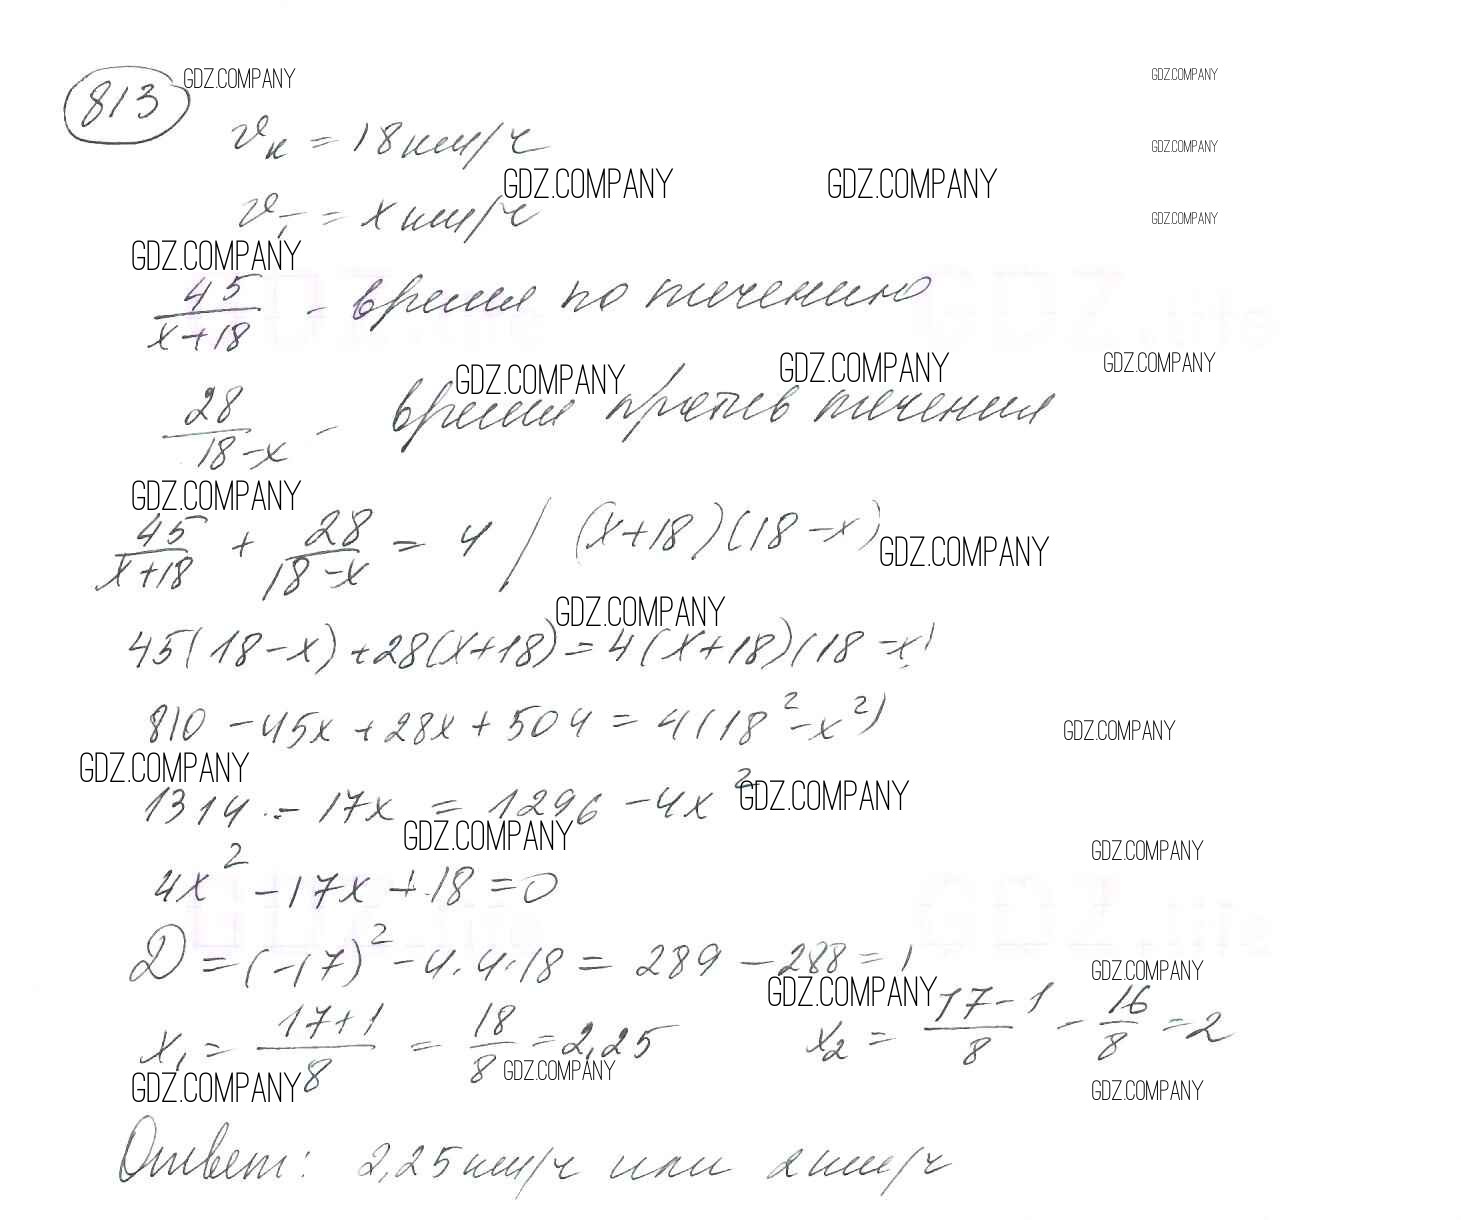 813 GDZ.COMPANY GDZ.COMPANY
vк = 18 км/ч GDZ.COMPANY
GDZ.COMPANY GDZ.COMPANY
vт = x км/ч GDZ.COMPANY
GDZ.COMPANY
45/(x+18) - время по течению
GDZ.COMPANY GDZ.COMPANY GDZ.COMPANY
28/(18-x) - время против течения
GDZ.COMPANY
45/(x+18) + 28/(18-x) = 4 / (x+18)(18-x) GDZ.COMPANY
GDZ.COMPANY
45(18-x)+28(x+18)=4(x+18)(18-x)
810 - 45x + 28x + 504 = 4(18²-x²) GDZ.COMPANY
GDZ.COMPANY
1314 - 17x = 1296 - 4x² GDZ.COMPANY
GDZ.COMPANY GDZ.COMPANY
4x² - 17x + 18 = 0
D = (-17)² - 4·4·18 = 289 - 288 = 1
GDZ.COMPANY GDZ.COMPANY
x₁ = (17+1)/8 = 18/8 = 2,25 x₂ = (17-1)/8 - 16/8 = 2
GDZ.COMPANY GDZ.COMPANY GDZ.COMPANY
Ответ: 2,25 км/ч или 2 км/ч